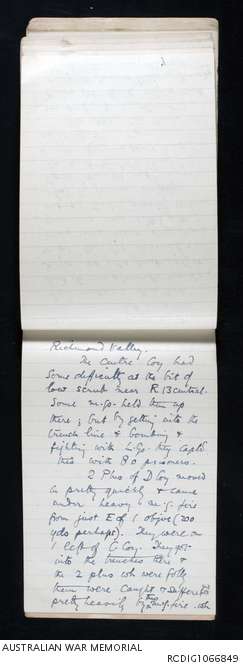 Richmond Valley.
The centre Coy had
some difficulty at the bit of
low scrub near R 13 central.
Some m.gs. held them up
there; but by getting into the
trench line & bombing &
fighting with L.Gs. they captd
this with 80 prisoners.
2 Plns of D Coy moved
in pretty quickly & came
under heavy m.g. fire
from just E of 1 objve (200
yds perhaps). They were on
left of C Coy. They got
into the trenches there &
the 2 plns wh were follg
them were caught & suffered
pretty heavily by this m.g. fire wh
AUSTRALIAN WAR MEMORIAL
RCDIG1066849